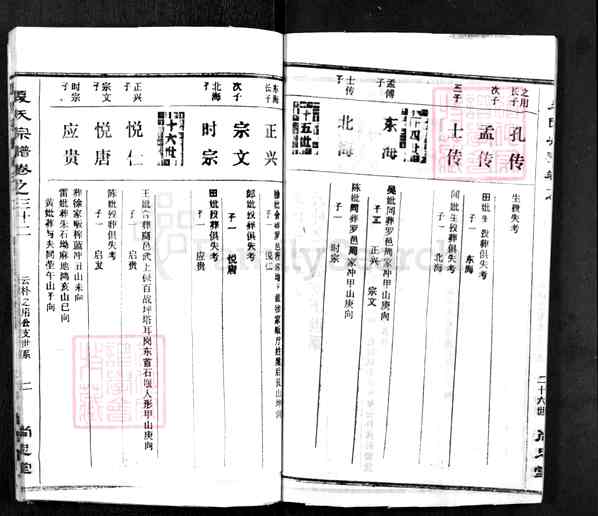 之用
长子
孔传
生殁失考
次子
孟传
田妣殁葬俱失考
子一
东海
三子
士传
闵妣生殁葬俱失考
子一
北海
十四世
孟傅
子
东海
吴妣同葬罗邑周家冲甲山庚向
子二
正兴
宗文
十五世
士传
子
北海
陈妣同葬罗邑周家冲甲山庚向
子一
时宗
二十六世
东海
长子
正兴
子一
悦仁
次子
宗文
郎妣殁葬俱失考
子一
悦唐
北海
子
时宗
田妣殁葬俱失考
子一
应贵
十六世
正兴
子
悦仁
王妣合葬罗邑武上候百战坪塔耳岗东首石堰人形甲山庚向
子一
启贵
宗文
子
悦唐
陈妣殁葬俱失考
子一
启发
时宗
子
应贵
葬徐家畈桦蓝冲丑山未向
雷妣葬朱石坳麻地湾亥山巳向
黄妣葬与夫同茔午山子向
夏氏宗谱卷之三十二
云朴之用公支世系
二
尚忠堂